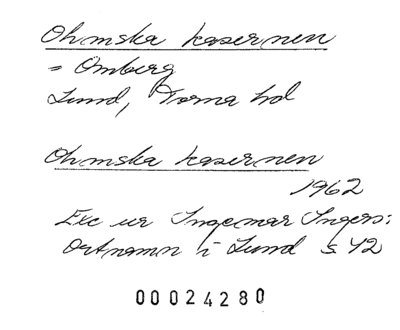 Ohmska kasernen
= Omberg
Lund, Torna hd
Ohmska kasernen
1962
Exc ur Ingemar Ingers:
Ortnamn i Lund s 42
00024280